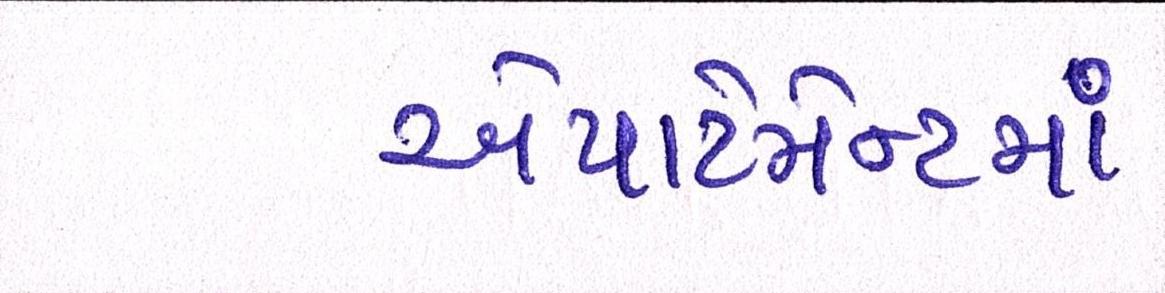 એપાર્ટમેન્ટમાં